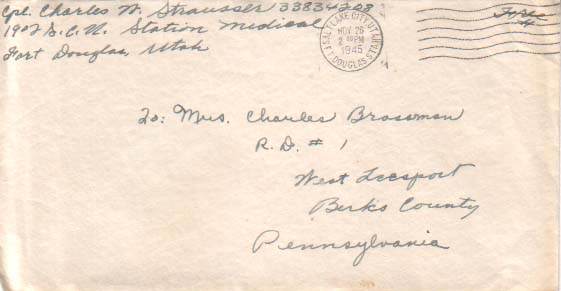 Cpl. Charles W. Strausser 33834208
1902 S.C.U. Station Medical
Fort Douglas, Utah
SALT LAKE CITY, UT
NOV 26
2 PM
1945
FT DOUGLAS STA
Free
To: Mrs. Charles Brossman
R.D. # 1
West Leesport
Berks County
Pennsylvania